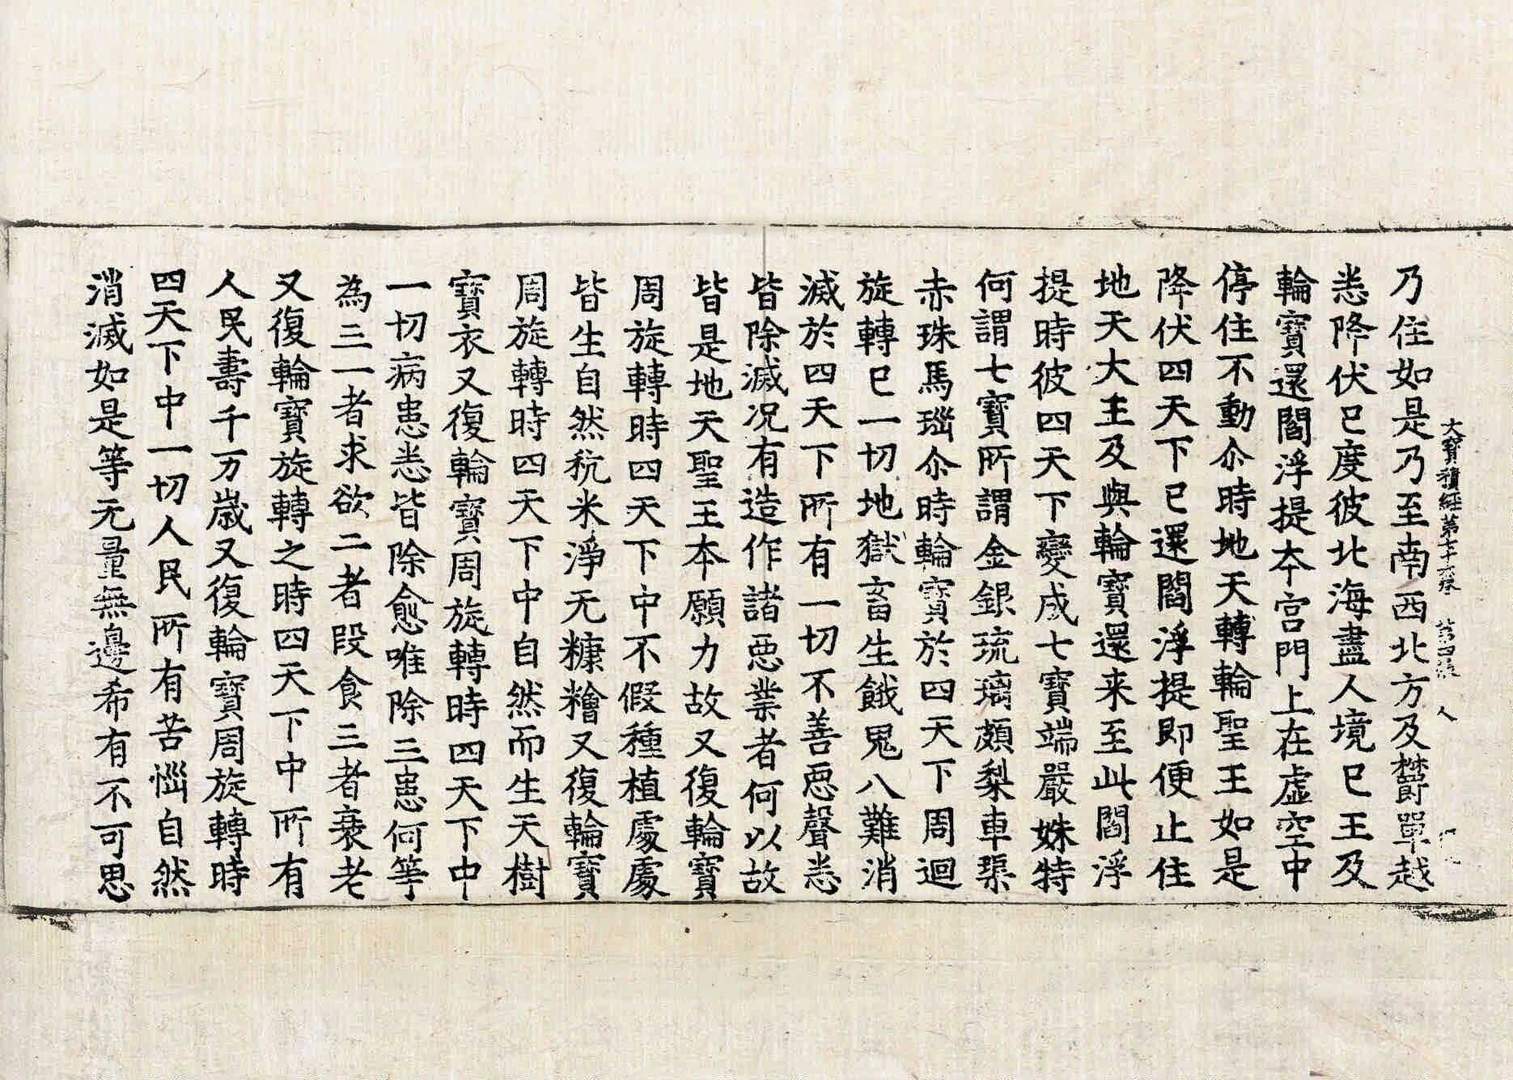 大寶積經第七十六卷 第四張 人
乃住如是乃至南西北方及欝單越
悉降伏已度彼北海盡人境已王及
輪寶還閻浮提本宮門上在虛空中
停住不動尒時地天轉輪聖王如是
降伏四天下已還閻浮提即便止住
地天大王及與輪寶還来至此閻浮
提時彼四天下變成七寶端嚴姝特
何謂七寶所謂金銀琉璃頗梨車𤦲
赤珠馬瑙尒時輪寶於四天下周迴
旋轉已一切地獄畜生餓鬼八難消
滅於四天下所有一切不善惡聲悉
皆除滅况有造作諸惡業者何以故
皆是地天聖王本願力故又復輪寶
周旋轉時四天下中不假種植處處
皆生自然秔米淨无糠糩又復輪寶
周旋轉時四天下中自然而生天樹
寶衣又復輪寶周旋轉時四天下中
一切病患悉皆除愈唯除三患何等
為三一者求欲二者段食三者衰老
又復輪寶旋轉之時四天下中所有
人民壽千万歲又復輪寶周旋轉時
四天下中一切人民所有苦惱自然
消滅如是等无量無邊希有不可思